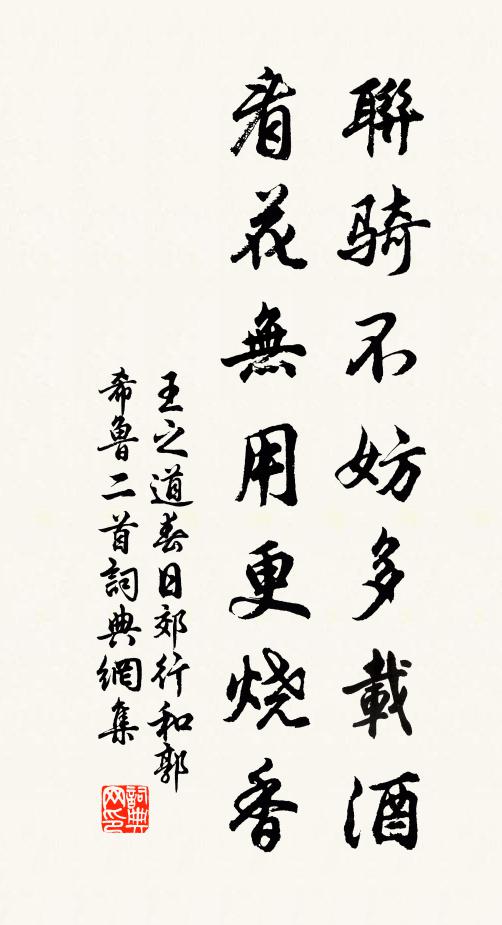 聯騎不妨多載酒
看花無用更燒香
王之道春日郊行和郭
希魯二首詞典網集
詞典
网印